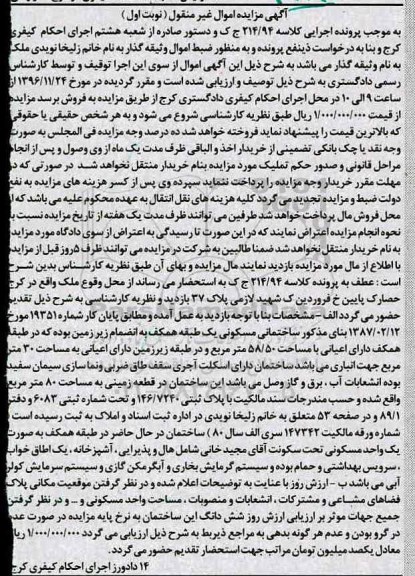 آگهی مزایده اموال غیر منقول (نوبت اول)
به موجب پرونده اجرایی کلاسه ۲۱۴/۹۴ ج ک و دستور صادره از شعبه هشتم اجرای احکام کیفری
کرج و بنا به درخواست ذینفع پرونده و به منظور ضبط اموال وثیقه گذار به نام خانم زلیخا نویدی ملک
به نام وثیقه گذار می باشد به شرح ذیل این آگهی اموال از سوی این اجرا توقیف و توسط کارشناس
رسمی دادگستری به شرح ذیل توصیف و ارزیابی شده است و مقرر گردیده در مورخ ۱۳۹۶/۱۱/۲۴ از
ساعت ۹ الی ۱۰ در محل اجرای احکام کیفری دادگستری کرج از طریق مزایده به فروش برسد مزایده
از قیمت ۱/۰۰۰/۰۰۰/۰۰۰ ریال طبق نظریه کارشناسی شروع می شود و به هر شخص حقیقی یا حقوقی
که بالاترین قیمت را پیشنهاد نماید فروخته خواهد شد ده درصد وجه مزایده فی المجلس به صورت
وجه نقد یا چک بانکی تضمینی از خریدار اخذ و الباقی ظرف مدت یک ماه از وی وصول و پس از انجام
مراحل قانونی و صدور حکم تملیک مورد مزایده بنام خریدار منتقل خواهد شد در صورتی که در
مهلت مقرر خریدار وجه مزایده را پرداخت ننماید سپرده وی پس از کسر هزینه های مزایده به نفع
دولت ضبط و مزایده تجدید می گردد کلیه هزینه های نقل انتقال به عهده محکوم علیه می باشد که از
محل فروش مال پرداخت خواهد شد طرفین می توانند ظرف مدت یک هفته از تاریخ مزایده نسبت به
نحوه انجام مزایده اعتراض نمایند که در این صورت تا رسیدگی به اعتراض از سوی دادگاه مورد مزایده
به نام خریدار منتقل نخواهد شد ضمنا طالبین به شرکت در مزایده می توانند ظرف ۵ روز قبل از مزایده
با اطلاع از مال مورد مزایده بازدید نمایند مال مزایده و بهای آن طبق نظریه کارشناس بدین شرح
است : عطف به پرونده کلاسه ۲۱۴/۹۴ ج ک به استحضار می رساند از محل وقوع ملک واقع در کرج
حصارک پایین خ فروردین ک شهید لازمی پلاک ۳۷ بازدید و نظریه کارشناسی به شرح ذیل تقدیم
حضور می گردد الف - مشخصات بنا با توجه بازدید به عمل آمده و مطابق پایان کار شماره ۱۹۳۵۱ مورخ
۱۳۸۷/۰۲/۱۲ بنای مذکور ساختمانی مسکونی یک طبقه همکف به انضمام زیر زمین بوده که در طبقه
همکف دارای اعیانی با مساحت ۵۸/۵۰ متر مربع و در طبقه زیرزمین دارای اعیانی به مساحت ۳۰ متر
مربع جهت انباری می باشد ساختمان دارای اسکلت آجری سقف طاق ضربی ونماسازی سیمان سفید
بوده انشعابات آب ، برق و گاز وصل می باشد این ساختمان در قطعه زمینی به مساحت ۸۰ متر مربع
واقع شده و حسب مندرجات سند مالکیت با پلاک ثبتی ۱۴۶/۷۲۴۰ و تحت شماره ثبتی ۶۰۸۳ و دفتر
۸۹/۱ و در صفحه ۵۳ متعلق به خانم زلیخا نویدی در اداره ثبت اسناد و املاک به ثبت رسیده است (
شماره ورقه مالکیت ۱۴۷۳۴۲ سری الف سال ۸۰ ) ساختمان در حال حاضر در طبقه همکف به صورت
یک واحد مسکونی تحت سکونت آقای مجید خانی شامل هال و پذیرایی ، آشپزخانه ، یک اطاق خواب
، سرویس بهداشتی و حمام بوده و سیستم گرمایش بخاری و آبگرمکن گازی و سیستم سرمایش کولر
آبی می باشد ب - ارزش روز با عنایت به توضیحات اعلام شده و در نظر گرفتن موقعیت مکانی پلاک
فضاهای مشاعی و مشترکات ، انشعابات و منصوبات ، مساحت واحد مسکونی و ... و در نظر گرفتن
جمیع جهات موثر بر ارزیابی ارزش روز شش دانگ این ساختمان به نرخ پایه مزایده در صورت عدم
در گرو بودن و عدم هر گونه بدهی به مراجع ذیربط به شرح ذیل ارزیابی می گردد ۱/۰۰۰/۰۰۰/۰۰۰ ریال
معادل یکصد میلیون تومان مراتب جهت استحضار تقدیم حضور می گردد.
۱۴ دادورز اجرای احکام کیفری کرج